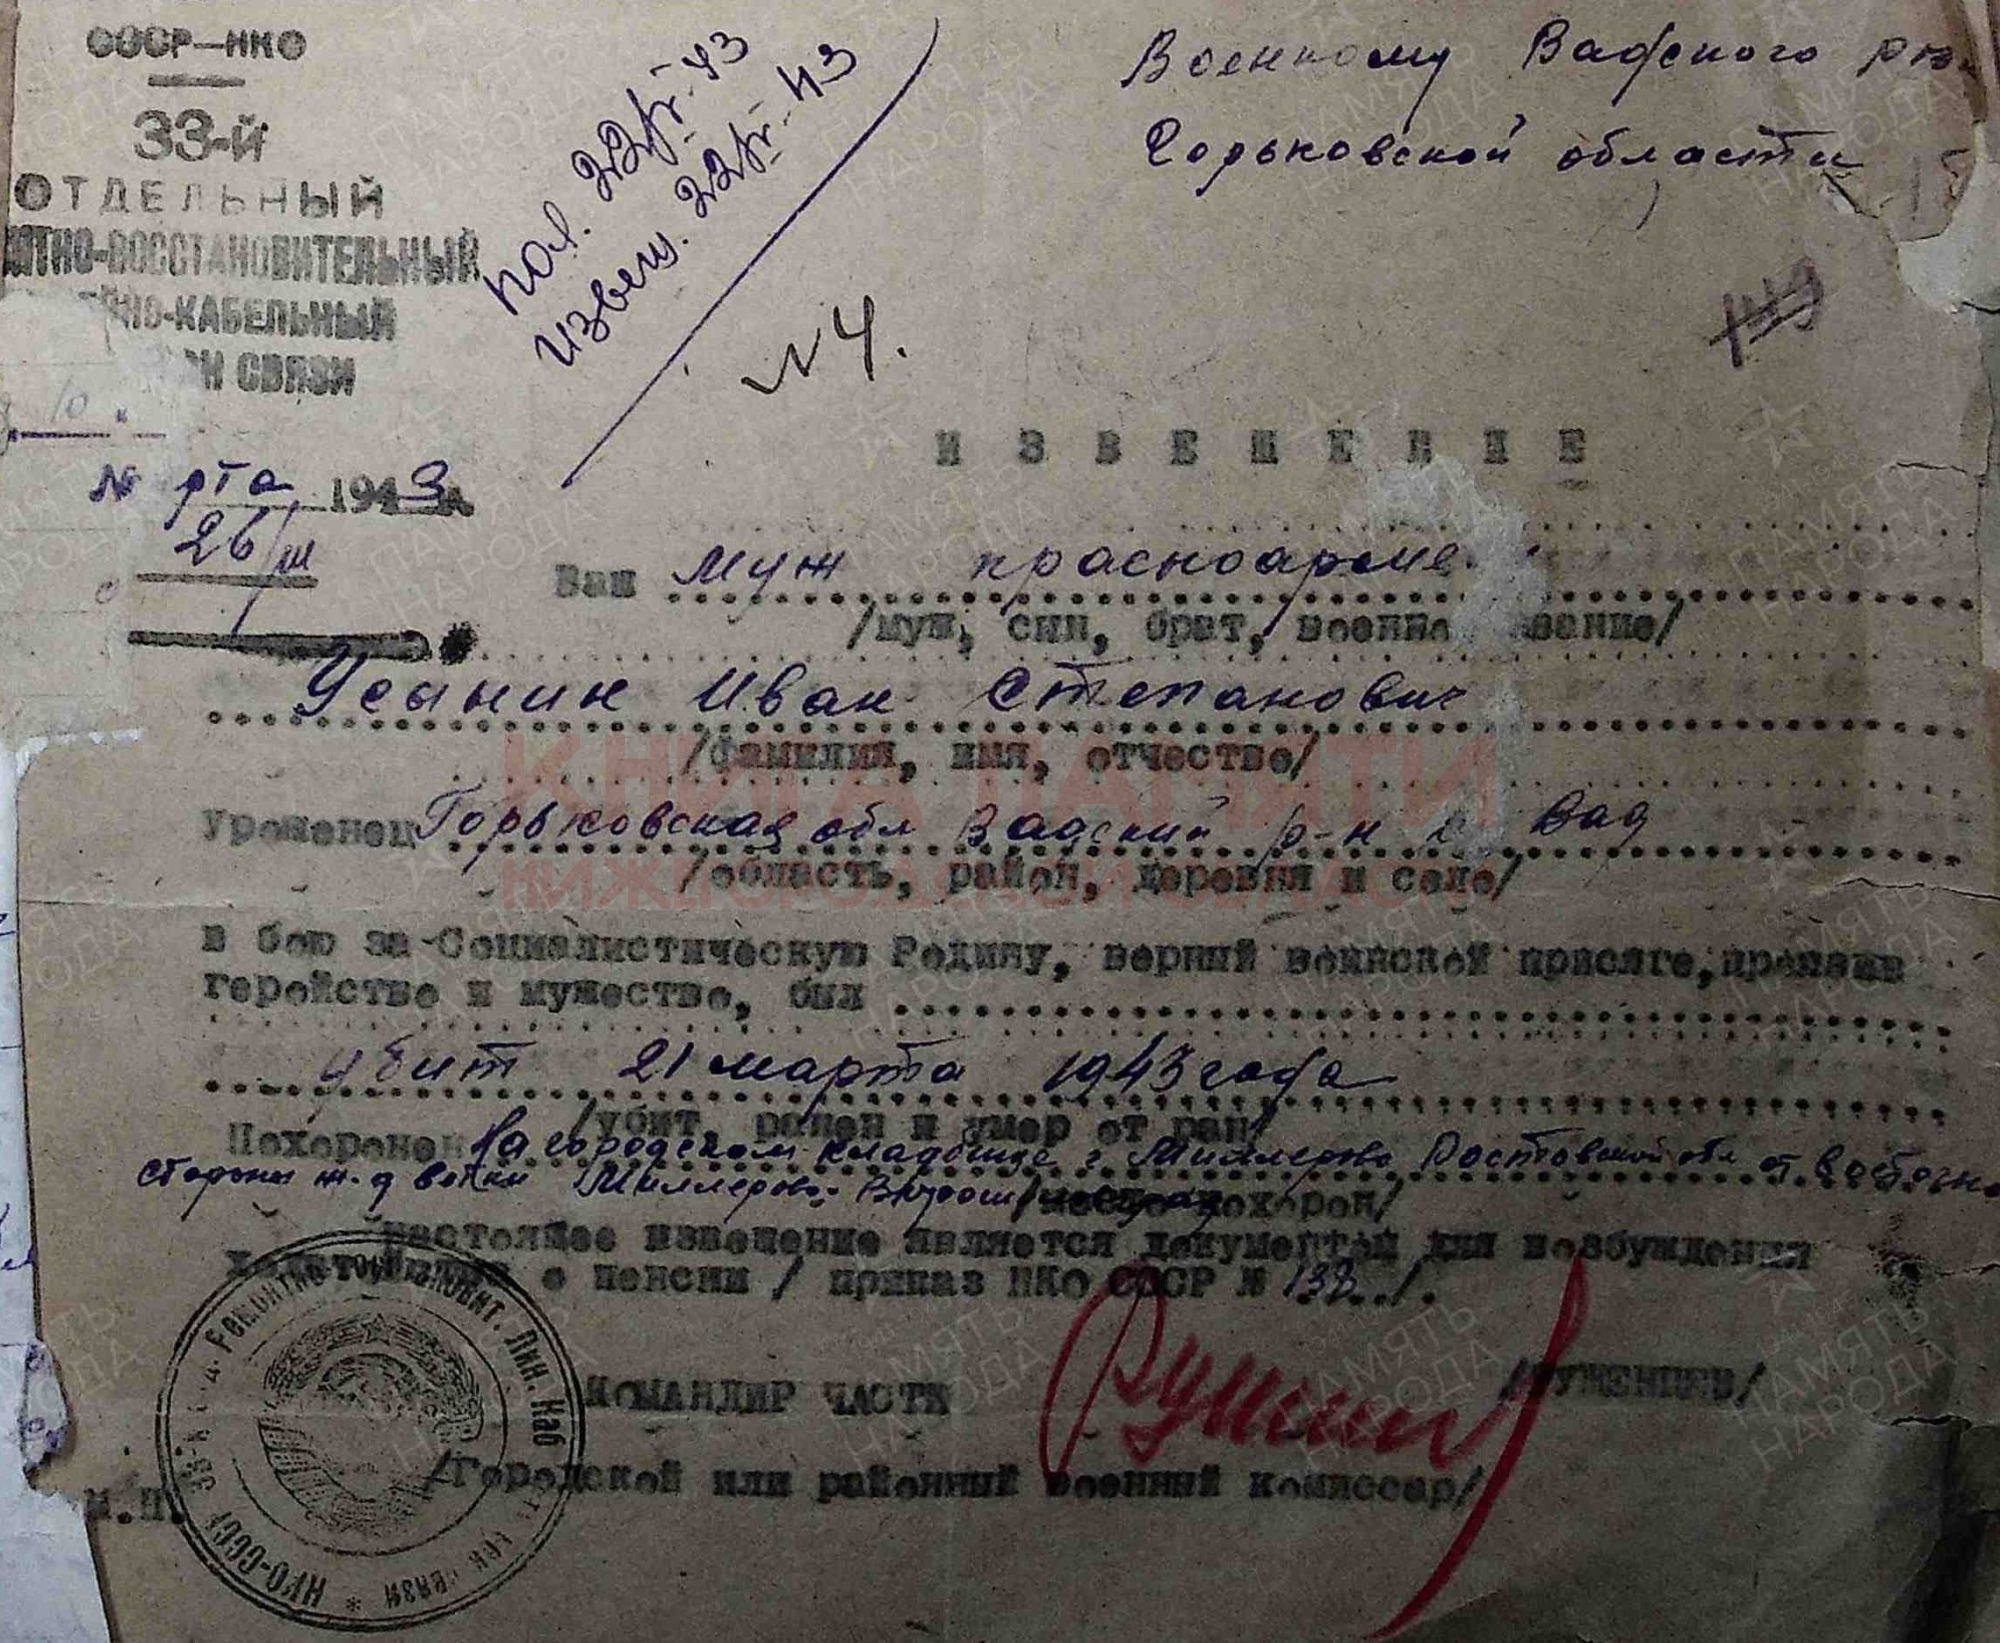 СССР—НКО
33-й
ОТДЕЛЬНЫЙ
ИТНО-ВОССТАНОВИТЕЛЬНЫЙ
НО-КАБЕЛЬНЫЙ
ОН СВЯЗИ
10.
№ рта 1943 г.
26/III
пол. 22/IV-43
извещ. 22/IV-43
№ 4.
Военкому Вадского р-
Горьковской области
ИЗВЕЩЕНИЕ
Ваш муж красноарме
/муж, сын, брат, военно звание/
Усынин Иван Степанович
/фамилия, имя, отчество/
КНИГА ПАМЯТИ
НИЖЕГОРОДСКОЙ ОБЛАСТИ
уроженец Горьковская обл Вадский р-н с Вад
/область, район, деревня и село/
в бою за Социалистическую Родину, верный воинской присяге, проявив
геройство и мужество, был
убит 21 марта 1943 года
/убит, ранен и умер от ран/
Похоронен На городском кладбище г Миллерово Ростовской обл от. Восточн.
стороны ж.д ветки Миллерово-
похорон/
настоящее извещение является документом для возбуждения
ходатайства о пенсии / приказ НКО СССР № 138../.
КОМАНДИР ЧАСТИ
/Городской или районный военный комиссар/
М.П.
НКО-СССР 33-й Ремонтно-восстановит. Лин. Каб связи
ПАМЯТЬ НАРОДА